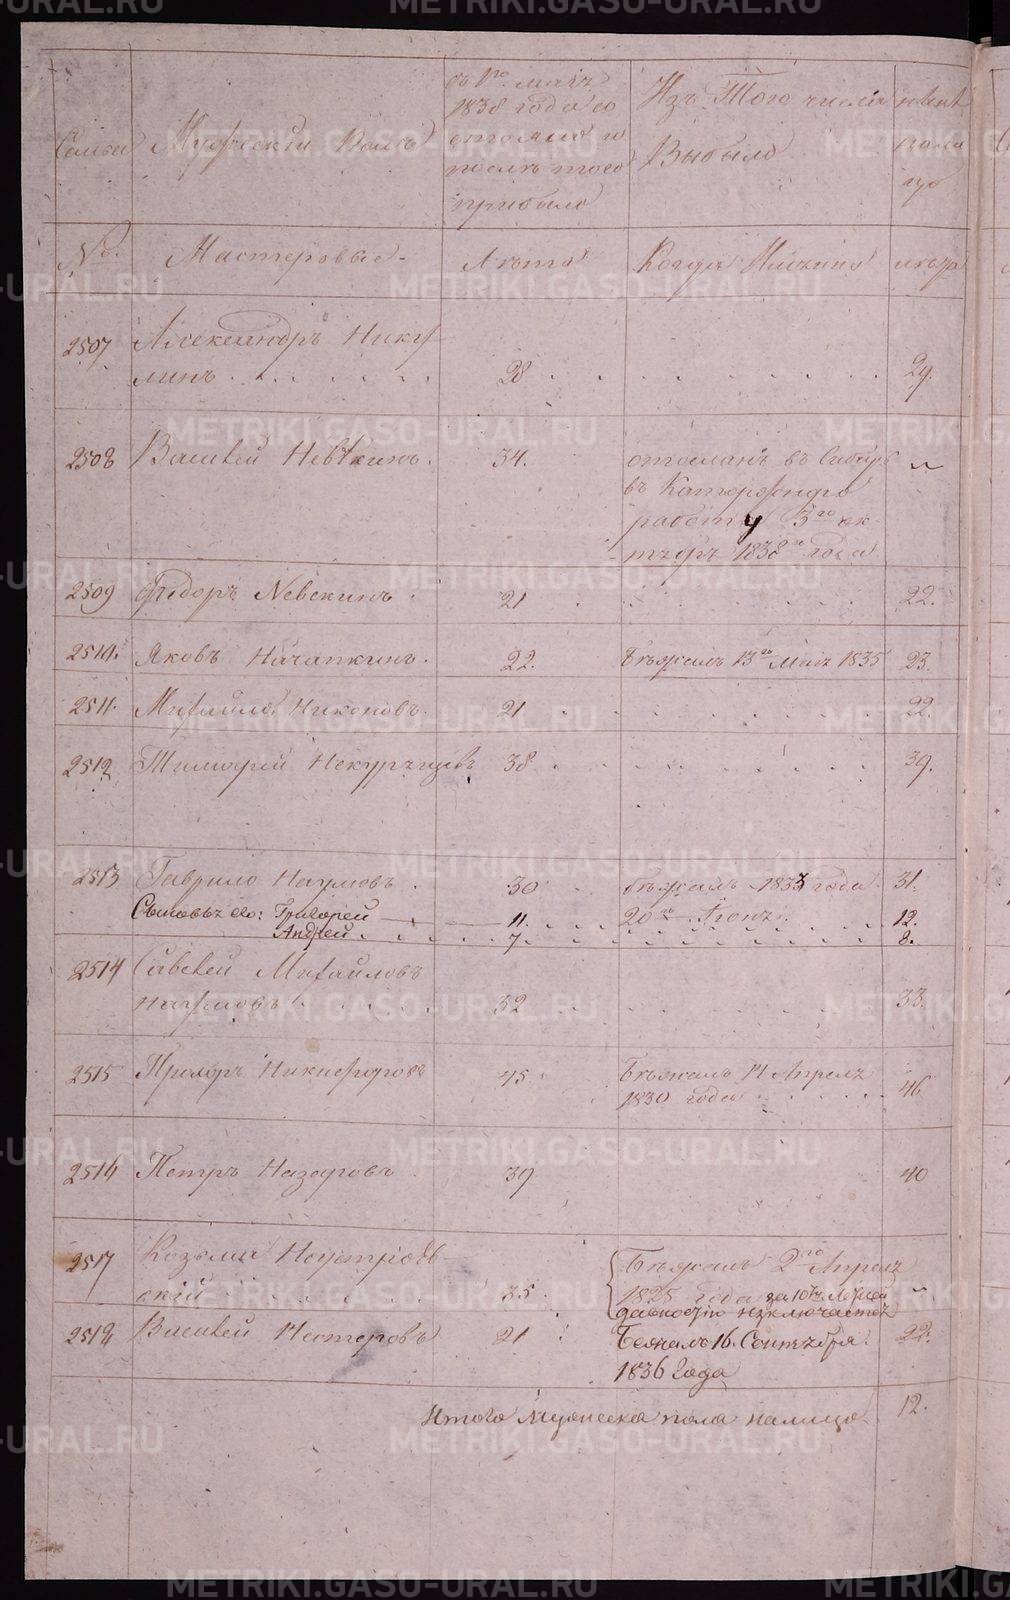 Семьи
Мужескій Полъ
съ 1го маія
1838 года со
стояло и
послѣ того
прибыло
Изъ Того числа
Выбыло
нынѣ
на ли
цо
№.
Мастеровые
Лѣта
Когда Имянно
лѣта
2507
Александръ Нику
линъ
28
29.
2508
Василей Невкинъ.
34.
отосланъ въ Сибирь
въ Каторжную
работу 3го ок
тября 1838го года
"
2509
Федоръ Невкинъ
21
22.
2510.
Яковъ Начапкинъ.
22.
Бѣжалъ 13го Маія 1835
23.
2511.
Михайло Никоновъ.
21
22.
2512
Тимофей Некурящевъ
38
39.
2513
Гаврило Наумовъ
30
бѣжалъ 1833 года
31.
Сыновья его: Григорей
11.
20го Іюня.
12.
Андрей
7.
8.
2514
Савелей Михайловъ
Наумовъ
32
33.
2515
Прохоръ Никифоровъ
45
Бѣжалъ 14 Апреля
1830 года
46
2516
Петръ Назаровъ
39
40
2517
Козьма Неустроев
ской
35
Бѣжалъ 2го Апреля
1825 года за 10ти Летней
давностію изключается
"
2518
Василей Нестеровъ
21
Бежалъ 16. Сентября
1836 Года
22.
Итого мужеска пола налицо
12.
METRIKI.GASO-URAL.RU